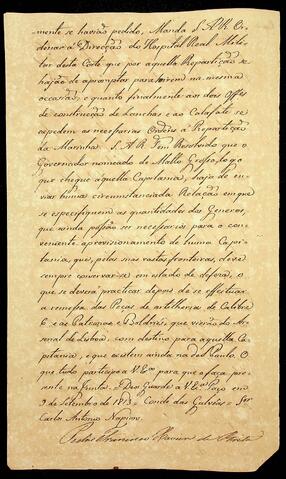 mente se havião pedido, Manda S. A. R. Or-
denar á Direcção do Hospital Real Mili-
tar desta Corte que por aquella Repartição se
hajão de apromptar para hirem na mesma
occasião; e quanto finalmente aos dois Offes
de construcção de Lanchas, e ao Calafate se
expedem as necessarias Ordens á Repartição
da Marinha. S. A. R. Tem Resolvido que o
Governador nomeado de Matto Grosso, logo
que chegue áquella Capitania, haja de en-
viar huma circunstanciada Relação em que
se especifiquem as quantidades dos Generos,
que ainda possão ser necessarios para o con-
veniente aprovisionamento de huma Capi-
tania, que, pelas suas vastas fronteiras, deve
sempre conservar-se em estado de defeza, o
que se deverá practicar depois de se effeituar
a remessa das Peças de artilheria de Calibre
6, e as Palamenas e Soldrés, que virão do Ar-
senal de Lisboa, com destino para aquella Ca-
pitania, e que existem ainda na de S. Paulo. O
que tudo participo a V. Exa para que o faça pre-
sente na Junta. = Deos Guarde a V. Exa Paço em
9 de Setembro de 1813 = Conde das Galvêas = Snr
Carlos Antonio Napion.
Francisco Xavier de